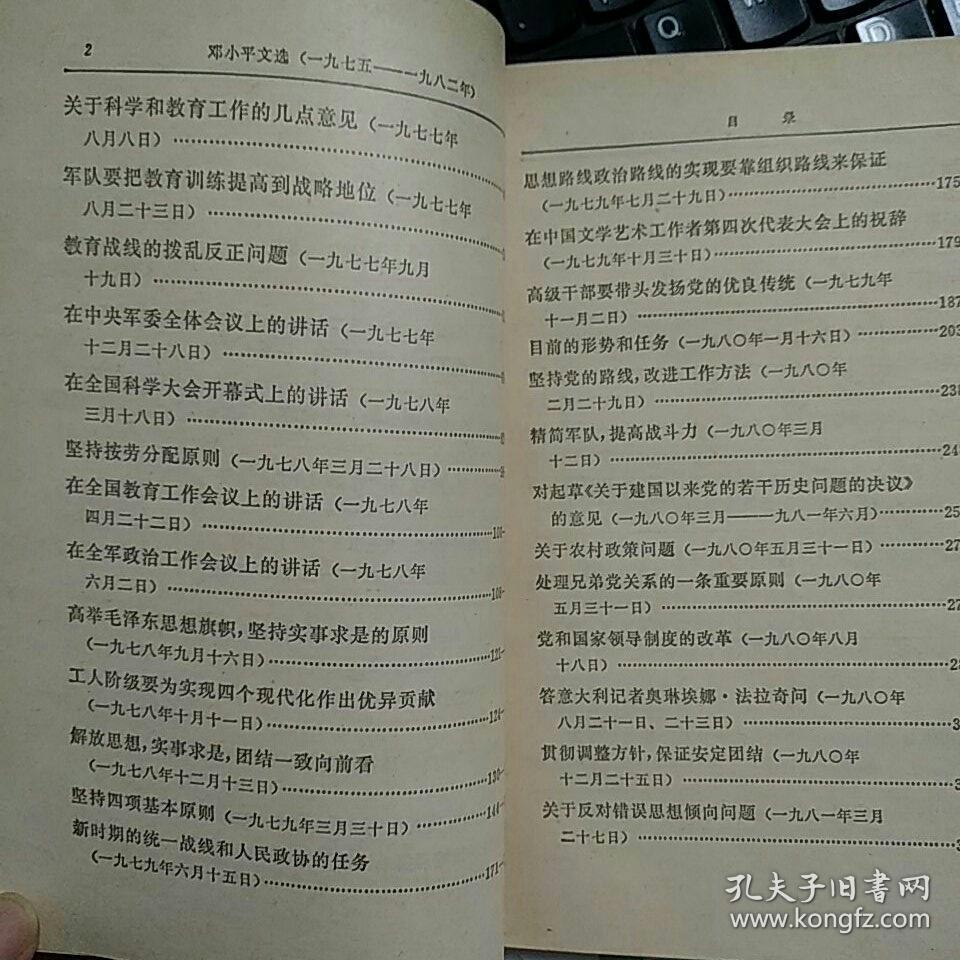 2 邓小平文选(一九七五——一九八二年)
关于科学和教育工作的几点意见(一九七七年
八月八日)
军队要把教育训练提高到战略地位(一九七七年
八月二十三日)
教育战线的拨乱反正问题(一九七七年九月
十九日)
在中央军委全体会议上的讲话(一九七七年
十二月二十八日)
在全国科学大会开幕式上的讲话(一九七八年
三月十八日)
坚持按劳分配原则(一九七八年三月二十八日)
在全国教育工作会议上的讲话(一九七八年
四月二十二日)……100
在全军政治工作会议上的讲话(一九七八年
六月二日)……108
高举毛泽东思想旗帜,坚持实事求是的原则
(一九七八年九月十六日)……121
工人阶级要为实现四个现代化作出优异贡献
(一九七八年十月十一日)……124
解放思想,实事求是,团结一致向前看
(一九七八年十二月十三日)……130
坚持四项基本原则(一九七九年三月三十日)……144
新时期的统一战线和人民政协的任务
(一九七九年六月十五日)……171
目 录
思想路线政治路线的实现要靠组织路线来保证
(一九七九年七月二十九日)……175
在中国文学艺术工作者第四次代表大会上的祝辞
(一九七九年十月三十日)……179
高级干部要带头发扬党的优良传统(一九七九年
十一月二日)……187
目前的形势和任务(一九八〇年一月十六日)……203
坚持党的路线,改进工作方法(一九八〇年
二月二十九日)……238
精简军队,提高战斗力(一九八〇年三月
十二日)……24
对起草《关于建国以来党的若干历史问题的决议》
的意见(一九八〇年三月——一九八一年六月)……25
关于农村政策问题(一九八〇年五月三十一日)……27
处理兄弟党关系的一条重要原则(一九八〇年
五月三十一日)……27
党和国家领导制度的改革(一九八〇年八月
十八日)……28
答意大利记者奥琳埃娜·法拉奇问(一九八〇年
八月二十一日、二十三日)……3
贯彻调整方针,保证安定团结(一九八〇年
十二月二十五日)……3
关于反对错误思想倾向问题(一九八一年三月
二十七日)……3
孔夫子旧书网
www.kongfz.com